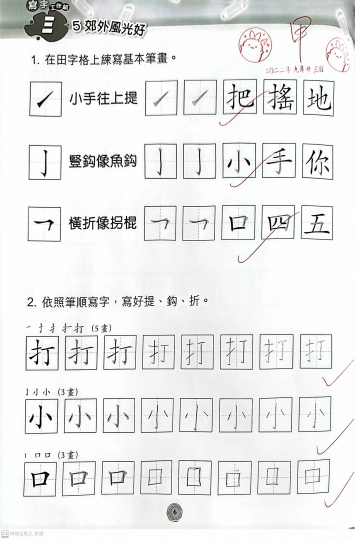 寫字工作紙
三
5 郊外風光好
甲
1. 在田字格上練寫基本筆畫。
小手往上提 把 搖 地
亅 豎鈎像魚鈎 亅 亅 小 手 你
橫折像拐棍 口 四 五
2. 依照筆順寫字，寫好提、鈎、折。
一 十 扌 扌 打 (5 畫)
打 打 打 打 打 打 打 打
亅 小 小 (3 畫)
小 小 小 小 小 小 小 小
丨 口 口 (3 畫)
口 口 口 口 口 口 口 口
6